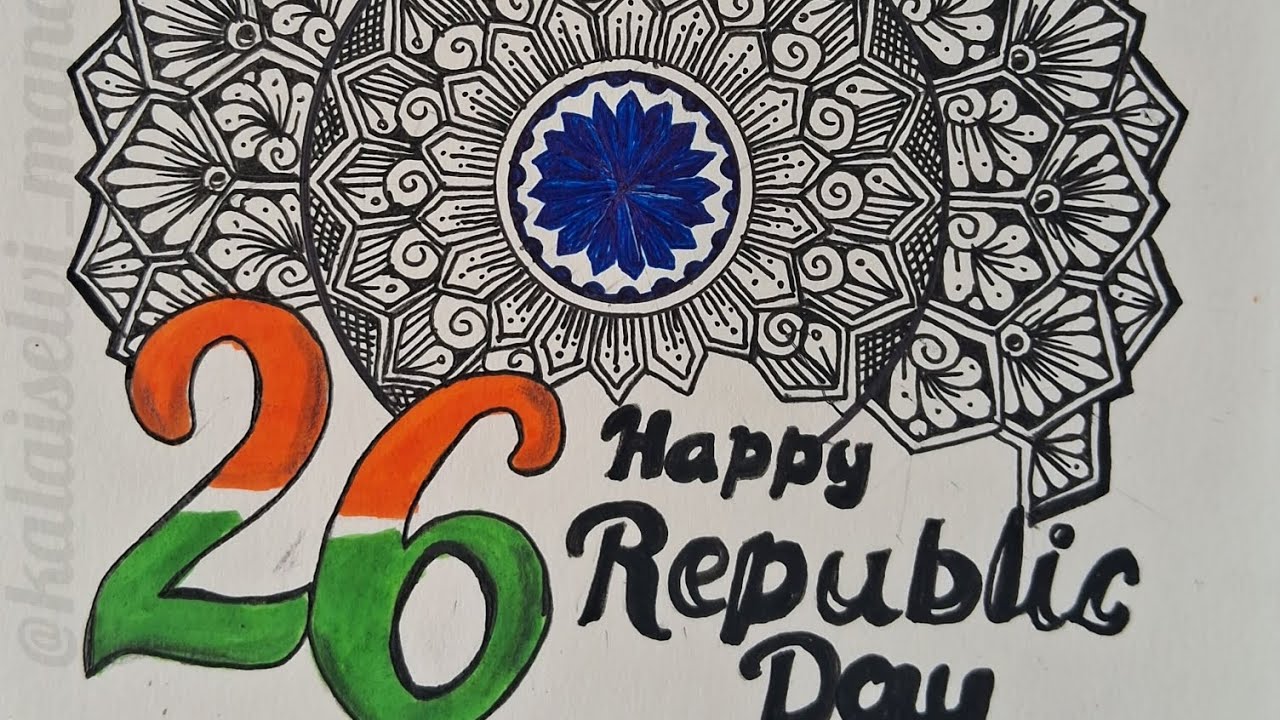 26
Happy
Republic
Day
@kalaiselvi_mand